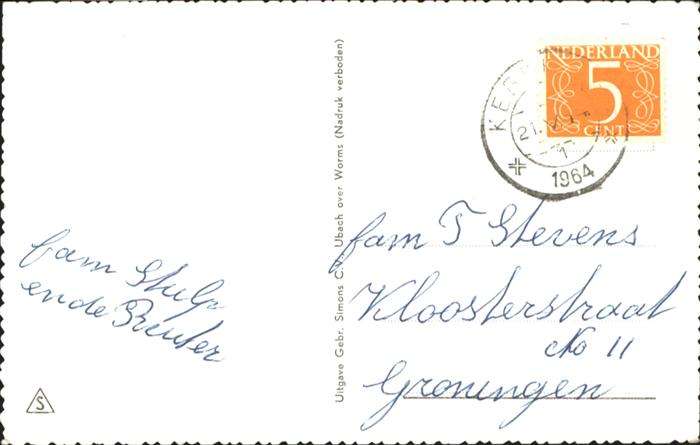 NEDERLAND
5
CENT
21.
1964
fam Stulp
en de Ruiter
Uitgave Gebr. Simons C.V. Ubach over Worms (Nadruk verboden)
fam T Stevens
Kloosterstraat
No 11
Groningen
S